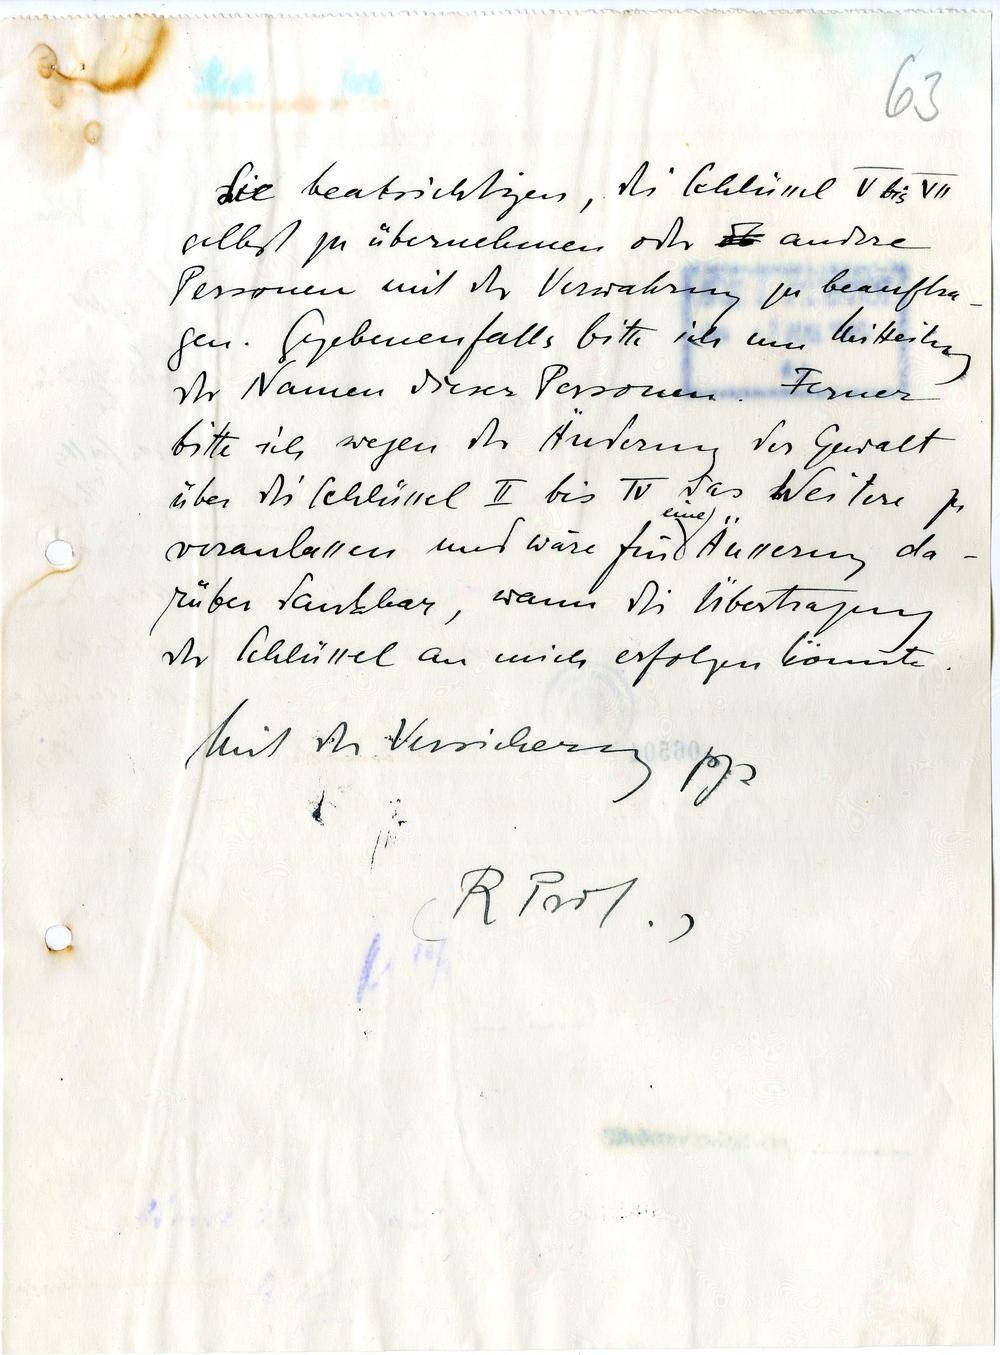 63
Sie beabsichtigen, die Schlüssel V bis VII
selbst zu übernehmen oder andere
Personen mit der Verwahrung zu beauftra-
gen. Gegebenenfalls bitte ich um Mitteilung
der Namen dieser Personen. Ferner
bitte ich wegen der Änderung der Gewalt
über die Schlüssel II bis IV das Weitere zu
veranlassen und wäre für eine Äusserung da-
rüber dankbar, wann die Übertragung
der Schlüssel an mich erfolgen könnte.
Mit der Versicherung pp
(R Präs.)